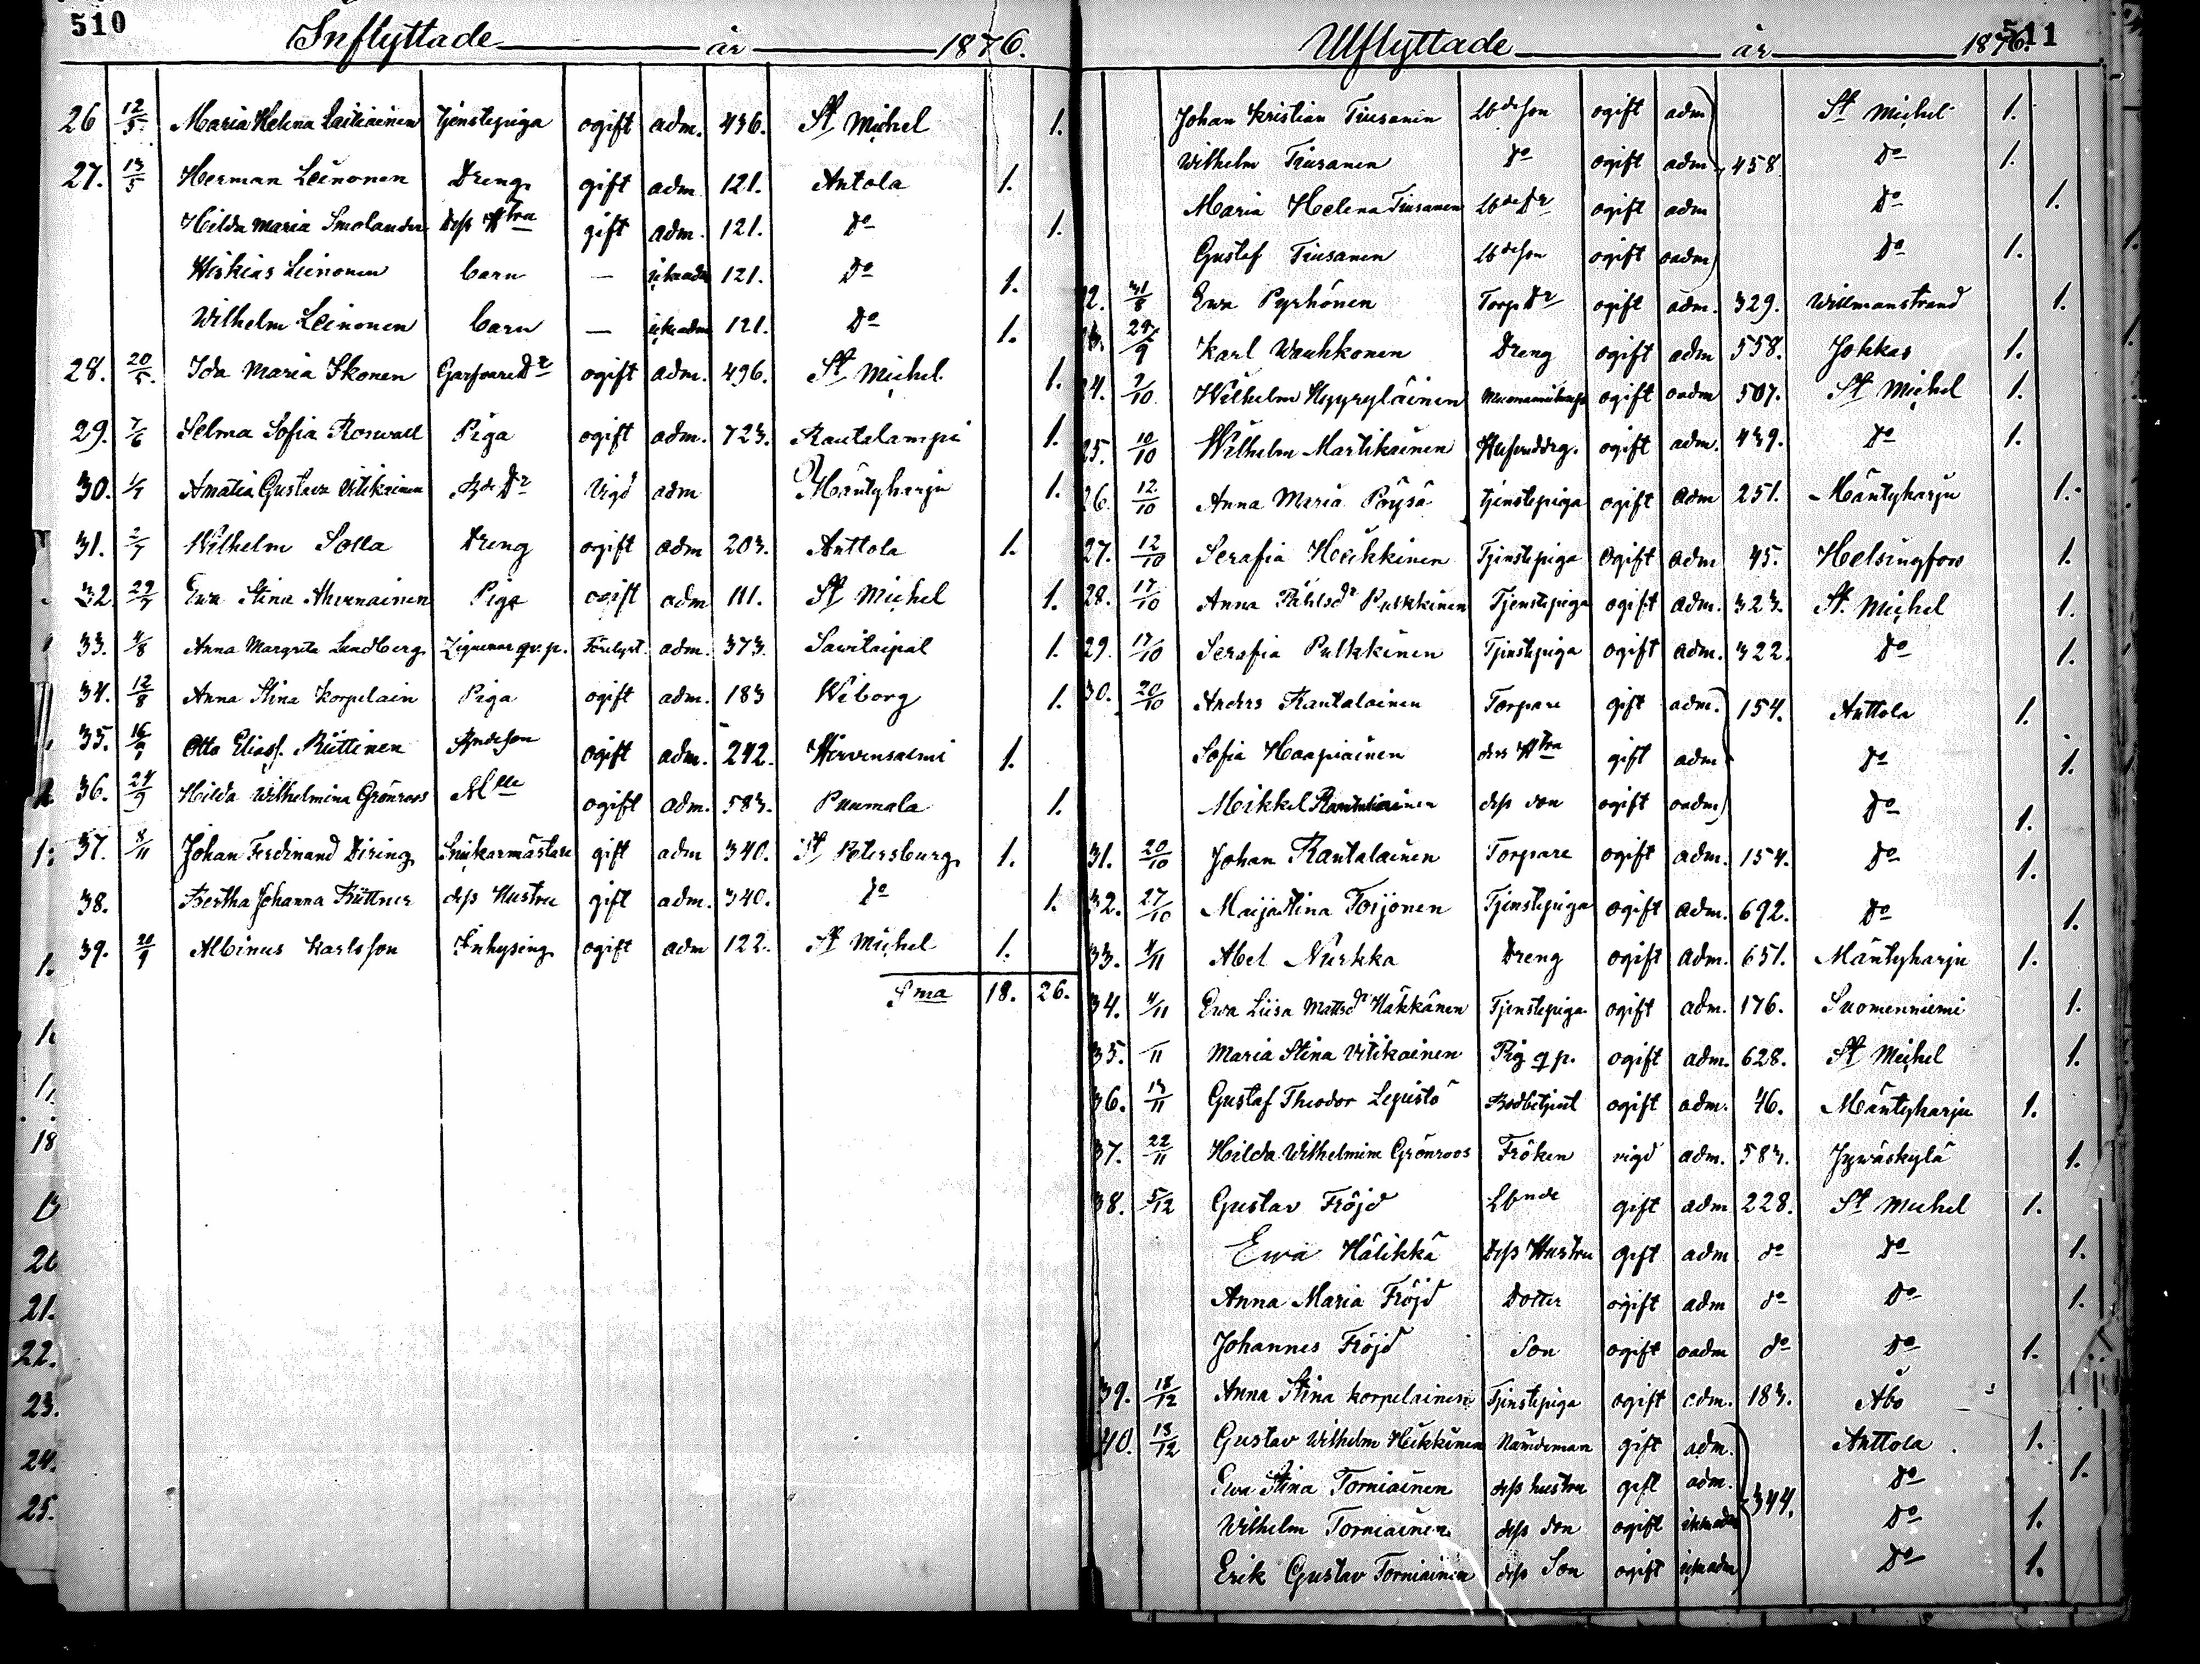 510
Inflyttade år 1876.
26 12/5. Maria Helena Laitiainen Tjenstepiga ogift adm. 436. St Michel 1.
27. 13/5 Herman Leinonen Dreng gift adm. 121. Antola 1.
Hilda Maria Smolander dess Hstru gift adm. 121. Do 1.
Hiskias Leinonen barn — ickeadm 121. Do 1.
Wilhelm Leinonen barn — ickeadm 121. Do 1.
28. 20/5. Ida Maria Ikonen GarfvareDr ogift adm. 496. St Michel. 1.
29. 7/6 Selma Sofia Roswall Piga ogift adm. 723. Rautalampi 1.
30. 1/7 Amalia Gustava Vitikainen BdeDr Vigd adm Mäntyharju 1.
31. 2/7 Wilhelm Solla Dreng ogift adm 203. Anttola 1.
32 29/7 Ewa Stina Ahvenainen Piga ogift adm 111. St Michel 1.
33. 4/8 Anna Margreta Lundberg Zigenar qv.p. adm. 373. Savitaipal 1.
34. 12/8 Anna Stina Korpelain Piga ogift adm. 183 Wiborg 1.
35. 16/9 Otto Eliass. Riittinen ogift adm. 242. Hirvensalmi 1.
36. 24/9 Hilda Wilhelmina Grönroos Mlle ogift adm. 583. Puumala 1.
37. 8/11 Johan Ferdinand Diring Snickarmästare gift adm 340. St Petersburg 1.
38. Bertha Johanna Büttner dess Hustru gift adm. 340. Do 1.
39. 20/9 Albinus Karlsson Inhysing ogift adm 122. St Michel 1.
Sma 18. 26.
511
Utflyttade år 1876.
Johan Kristian Tiusanen Lbdeson ogift adm St Michel 1.
Wilhelm Tiusanen Do ogift adm 458. Do 1.
Maria Helena Tiusanen LbdeDr ogift adm Do 1.
Gustaf Tiusanen Lbdeson ogift oadm Do 1.
22. 31/8 Ewa Pyrhönen TorpDr ogift adm. 329. Willmanstrand 1.
23. 29/9 Karl Wauhkonen Dreng ogift adm 558. Jokkas 1.
24. 7/10 Wilhelm Hyyryläinen ogift oadm 507. St Michel 1.
25. 10/10 Wilhelm Martikainen ogift adm. 439. Do 1.
26. 12/10 Anna Maria Pöysä tjenstepiga ogift adm 251. Mäntyharju 1.
27. 12/10 Serafia Heikkinen Tjenstepiga ogift adm 45. Helsingfors 1.
28. 17/10 Anna Påhlsdr Pulkkinen Tjenstepiga ogift adm. 323. St. Michel 1.
29. 17/10 Serafia Pulkkinen Tjenstepiga ogift adm. 322. Do 1.
30. 20/10 Anders Rantalainen Torpare gift adm. 154. Anttola 1.
Sofia Haapiainen dess Hstru gift adm Do 1.
Mikkel Rantalainen dess son ogift oadm Do 1.
31. 20/10 Johan Rantalainen Torpare ogift adm. 154. Do 1.
32. 27/10 Maija Stina Toijonen Tjenstepiga ogift adm. 692. Do 1.
33. 4/11 Abel Nurkka Dreng ogift adm. 651. Mäntyharju 1.
34. 4/11 Ewa Liisa Mattsdr Häkkänen Tjenstepiga ogift adm. 176. Suomenniemi 1.
35. /11 Maria Stina Vitikainen Pig q p. ogift adm. 628. St Michel 1.
36. 13/11 Gustaf Theodor Lepistö Bodbetjent ogift adm. 46. Mäntyharju 1.
37. 22/11 Hilda Wilhelmina Grönroos Fröken vigd adm. 583. Jyväskylä 1.
38. 5/12 Gustav Fröjd Lbnde gift adm 228. St Michel 1.
Ewa Hälikkä dess Hustru gift adm do Do 1.
Anna Maria Fröjd Dotter ogift adm do Do 1.
Johannes Fröjd Son ogift oadm do Do 1.
39. 18/12 Anna Stina Korpelainen Tjenstepiga ogift adm. 183. Åbo
40. 13/12 Gustav Wilhelm Heikkinen Nämdeman gift adm. Anttola 1.
Ewa Stina Torniainen dess hustru gift adm. 344. Do 1.
Wilhelm Torniainen dess son ogift ickeadm Do 1.
Erik Gustav Torniainen dess Son ogift ickeadm Do 1.
1.
1.
18
20
21.
22.
23.
24.
25.